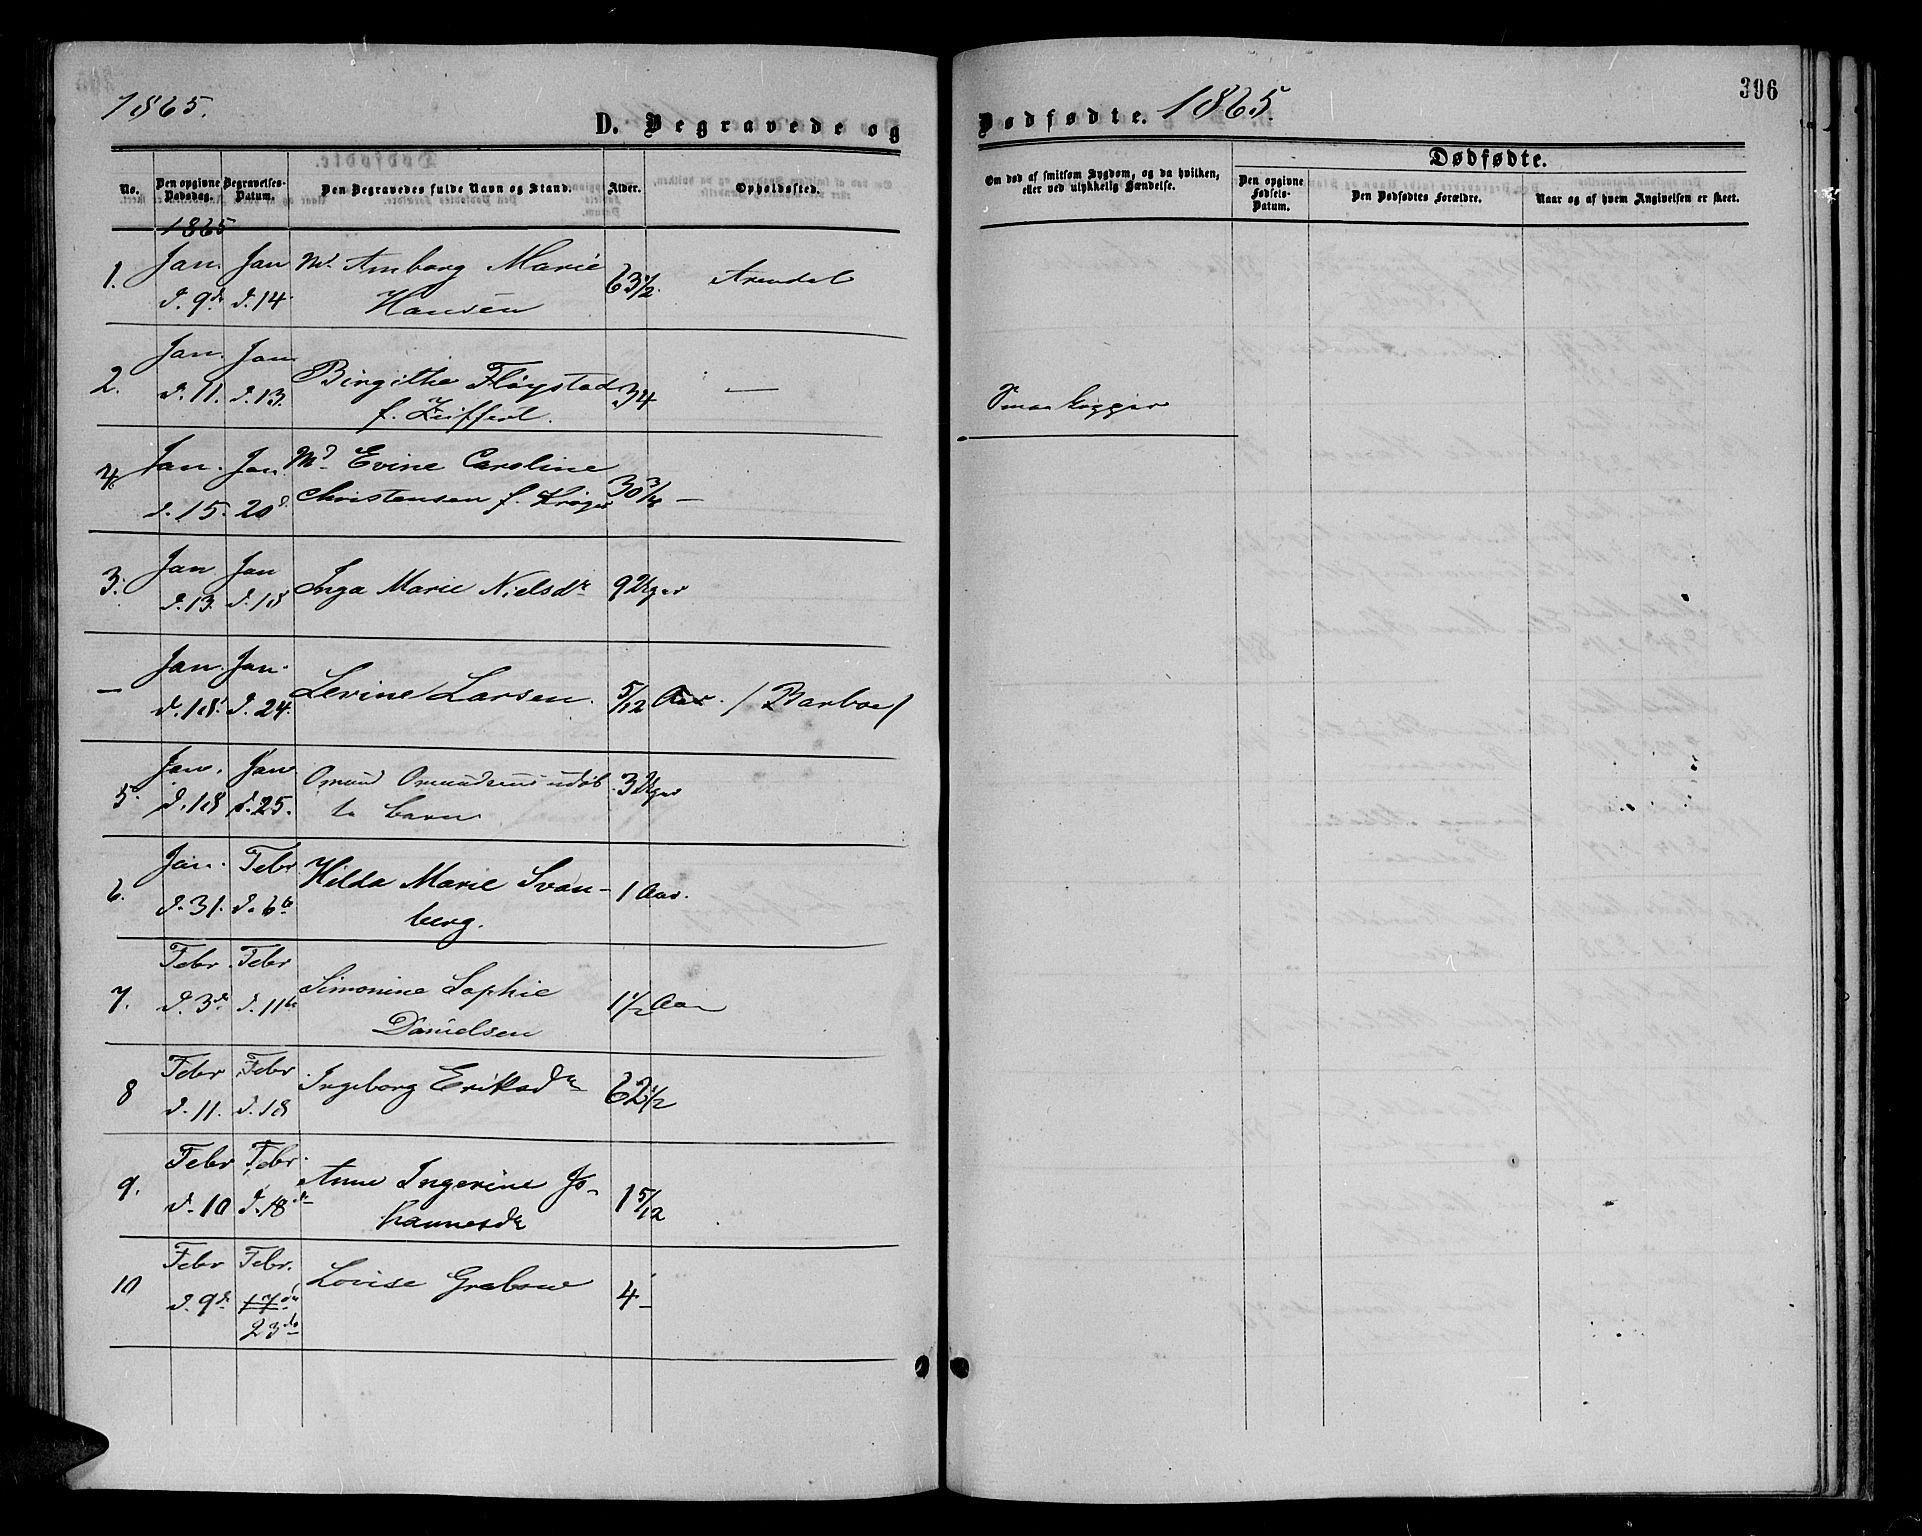 1865.
D. Begravede og
No.
Den opgivne Dødsdag.
Begravelses-Datum.
Den Begravedes fulde Navn og Stand.
Alder.
Opholdssted.
1865
1. Jan. d. 9de Jan d. 14 Md. Amborg Marie Hansen 63 1/2 Arendal
2. Jan. d. 11. Jan d. 13. Birgithe Fløystad f. 34 —
4. Jan. d. 15. Jan. 20d Md. Evine Caroline Christensen f. Krøger 30 3/4 —
3. Jan d. 13. Jan d. 18 Inga Marie Nielsdr 9 Uger
— Jan. d. 18. Jan. d. 24. Levine Larsen. 5/12 Aar. / Barboe /
5. Jan. d. 18 Jan d. 25. Omund Omundsens udøbte barn 3 Uger
6. Jan. d. 31. Febr d. 6te Hilda Marie Svanberg. 1 Aar.
7. Febr d. 3de Febr d. 11te Simonine Sophie Danielsen 1 1/2 Aar
8 Febr d. 11. Febr d. 18 Ingeborg Eriksdr 62 1/2
9. Febr d. 10 Febr. d. 18de Anne Ingerine Johannesdr 1 5/12
10 Febr d. 9de Febr. 17de 23de Lovise Grabow 4 —
Dødfødte. 1865.
396
Om død af smitsom Sygdom, og da hvilken, eller ved ulykkelig Hændelse.
Dødfødte.
Den opgivne Fødsels-Datum.
Den Dødfødtes Forældre.
Naar og af hvem Angivelsen er skeet.
Smaakopper